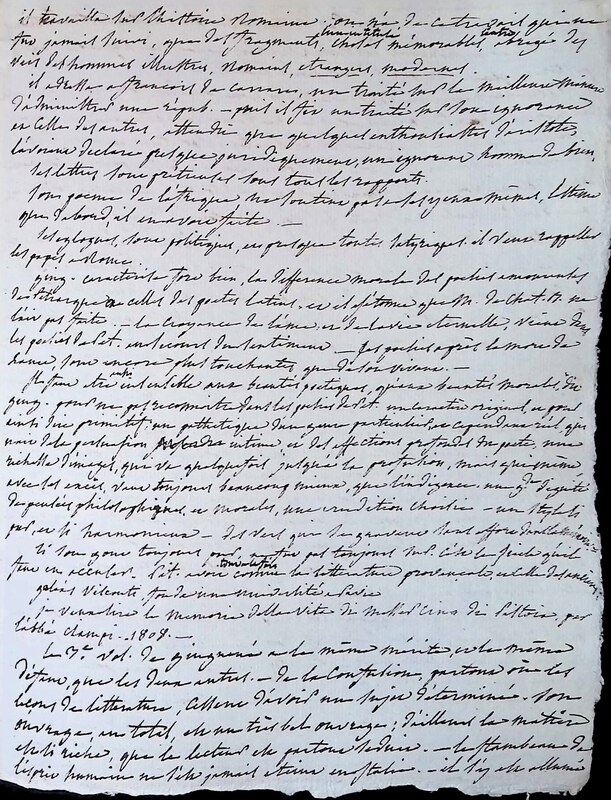 il travailla sur l'histoire romaine, on n'a de ce travail qui ne
fut jamais suivi, que des fragments, intitulés choses mémorables, abrégé des
vies des hommes illustres, romains, étrangers, modernes.
il adressa a francois de carrare, un traité sur la meilleure maniere
d'administrer une répub. — puis il fit un traité sur son ignorance
et celle des autres, attendu que quelques enthousiastes d'aristote,
l'avoient déclaré presque juridiquement, un ignorant homme de bien.
ses lettres sont prétieuses sous tous les rapports
son poeme de l'afrique ne soutint pas a ses yeux mêmes, l'estime
que d'abord, il en avoit faite —
ses eglogues, sont politiques, et presque toutes satyriques. il veut rappeller
les papes a Rome
ging. caractérise fort bien, la différence morale des poesies amoureuses
de Pétrarque a celles des poetes latins. et il s'étonne que M. de Chat. B. ne
l'ait pas faite. — la croyance de l'âme et de la vie eternelle, vient dans
les poesies de Pet. au secours du sentiment — ses poesies après la mort de
Laure, sont encore plus touchantes que de son vivant. —
Il faut etre insensible aux beautés poetiques, qu'aux beautés morales, dit
ging. pour ne pas reconnoitre dans les poesies de Pet. un caractere original, et pour
ainsi dire primitif; un pathetique d'un genre particulier, et cependant réel, qui
nait de la persuasion intime et des affections profondes du poete, une
richesse d'images, qui va quelquefois, jusqu'a la profusion, mais qui même
avec cet excès, vaut toujours beaucoup mieux, que l'indigence, une gde dignité
de pensées philosophiques, et morales, une érudition choisie — un style si
pur, et si harmonieux — des vers qui se gravent sans effort dans la mémoire
si son gout toujours pur, ne fut pas toujours sur. c'est le siecle qu'il
faut en accuser. Pet. avoit connu la littérature provençale et celle des
galéas Visconti, fonda une université a Pavie
Je viens lire le memorie della vita di messer Cino da Pistoia, par
l'abbé Ciampi. 1808. —
Le 3e vol. de ginguené a le même mérite, et le même
défaut, que les deux autres. — de la confusion, partout où les
leçons de littérature, cessent d'avoir un sujet déterminé. son
ouvrage, au total, est un très bel ouvrage; d'ailleurs la matière
est si riche, que le lecteur est partout séduit. — le flambeau de
l'esprit humain ne s'est jamais éteint en Italie — il s'y est allumé